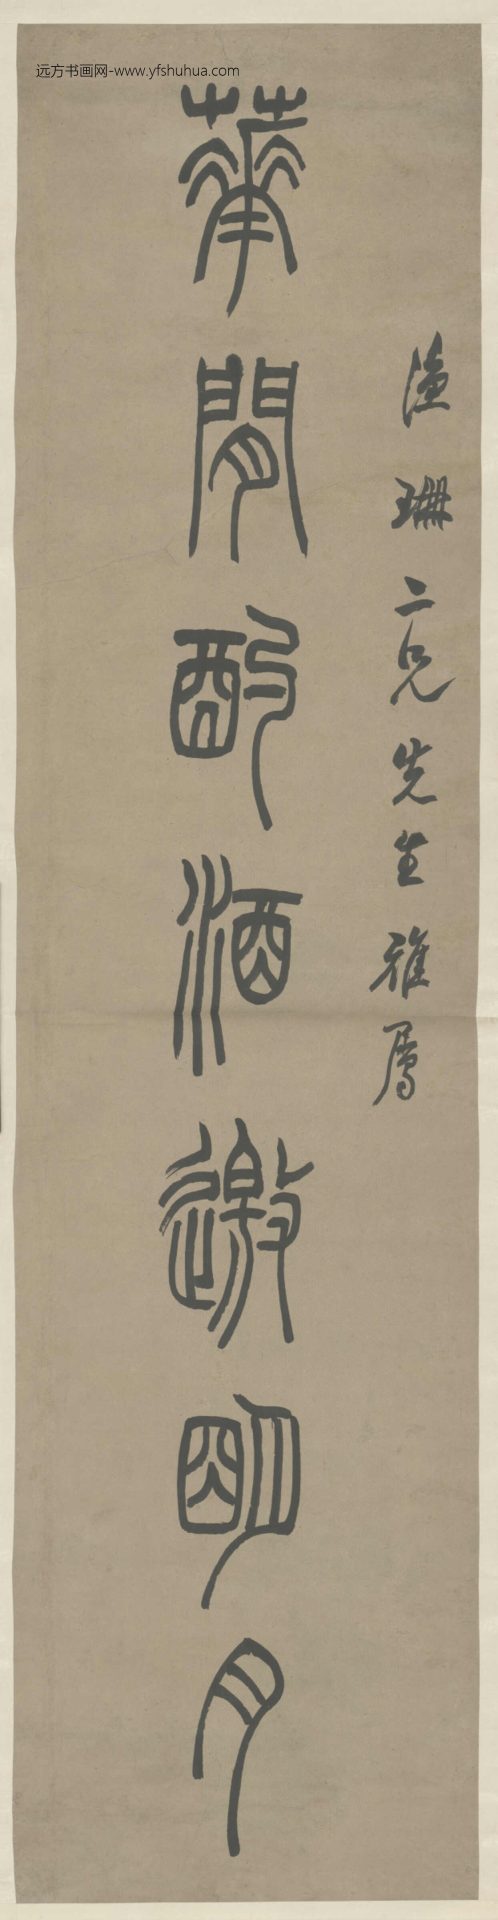 远方书画网-www.yfshuhua.com
珊二兄先生雅属
華閒酌酒邀明月